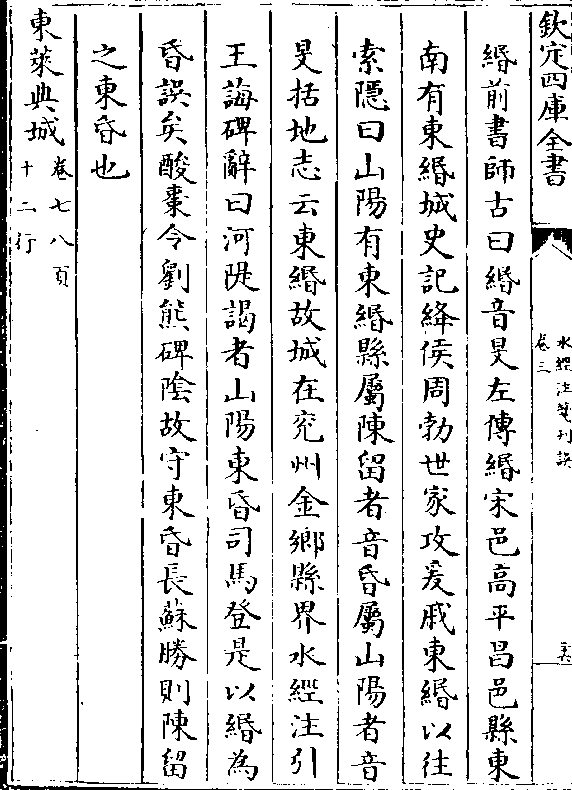 欽定四庫全書
水經注箋刋誤
卷三
緡前書師古曰緡音旻左傳緡宋邑高平昌邑縣東
南有東緡城史記絳侯周勃世家攻爰戚東緡以往
索隱曰山陽有東緡縣屬陳留者音昏屬山陽者音
旻括地志云東緡故城在兖州金鄉縣界水經注引
王誨碑辭曰河隄謁者山陽東昏司馬登是以緡為
昏誤矣酸棗令劉熊碑陰故守東昏長蘇勝則陳留
之東昏也
東萊典城
卷七八頁
十二行